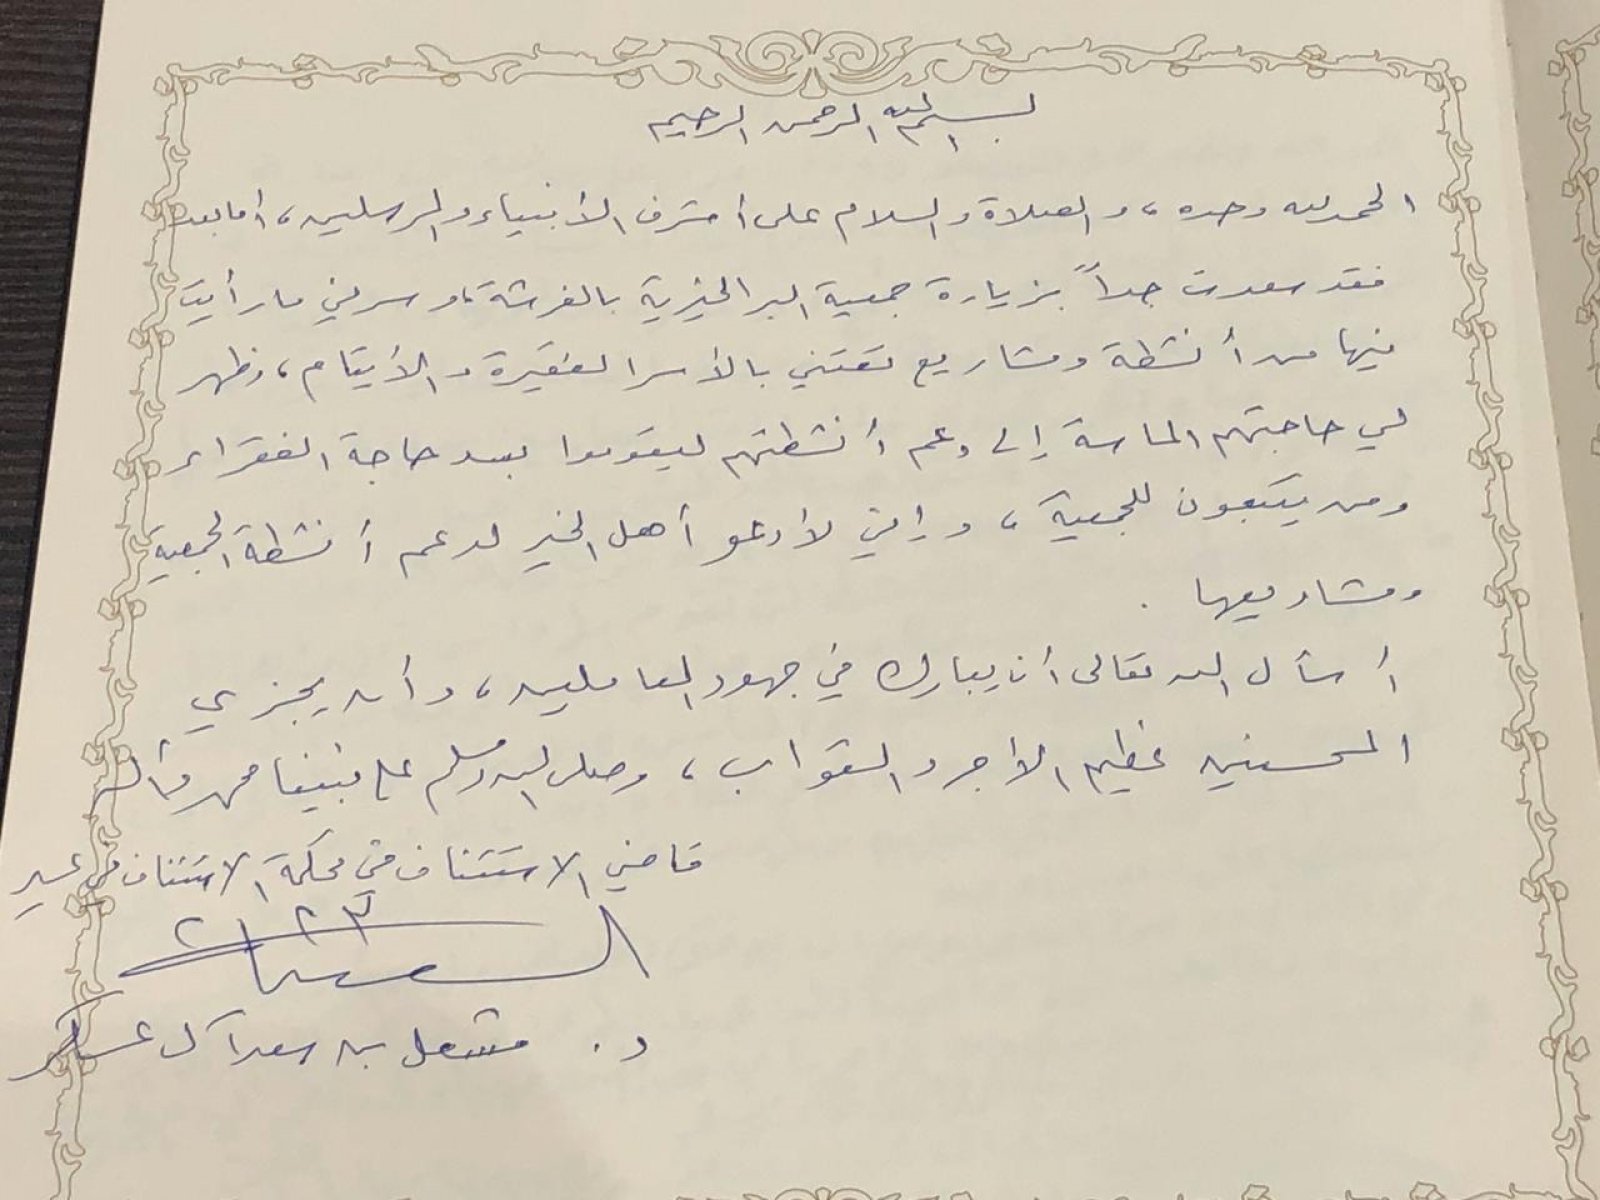 بسم الله الرحمن الرحيم
الحمد لله وحده ، والصلاة والسلام على أشرف الأنبياء والمرسلين ، أما بعد
فقد سعدت جداً بزيارة جمعية البر الخيرية بالفرشة ، وسرني ما رأيت
فيها من أنشطة ومشاريع تعتني بالأسر الفقيرة والأيتام ، وظهر
لي حاجتهم الماسة إلى دعم أنشطتهم ليقوموا بسد حاجة الفقراء
ومن يتبعون للجمعية ، وإني لأدعو أهل الخير لدعم أنشطة الجمعية
ومشاريعها .
أسأل الله تعالى أن يبارك في جهود العاملين ، وأن يجزي
المحسنين عظيم الأجر والثواب ، وصلى الله وسلم على نبينا محمد وآله
قاضي الاستئناف في محكمة الاستئناف في عسير
د . مشعل بن سعد آل عسكر